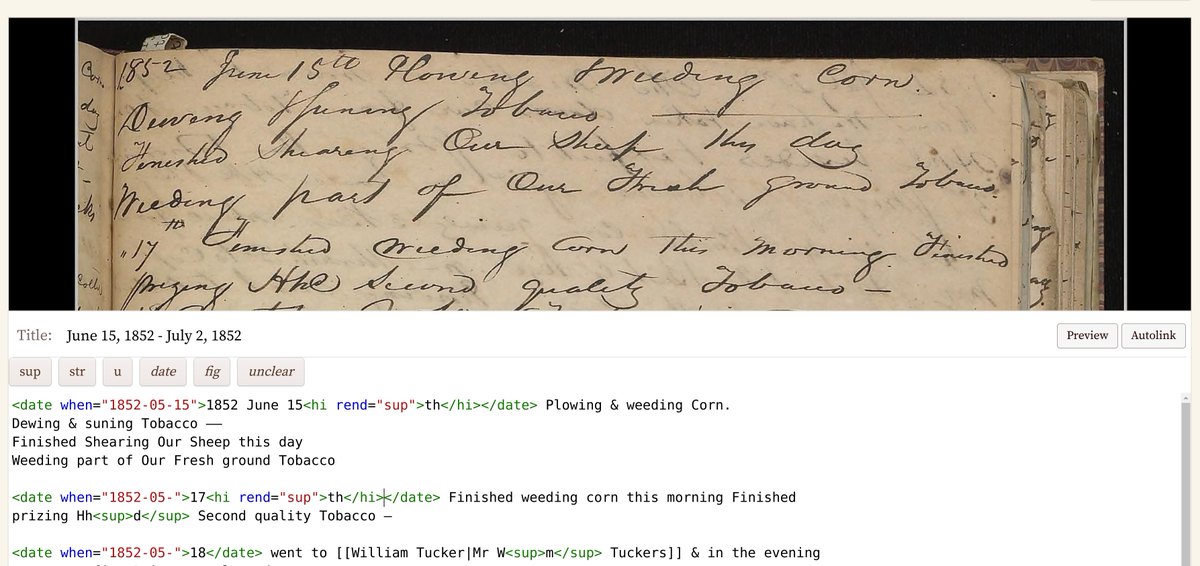 1852 June 15th Plowing & Weeding Corn.
Dewing & Suning Tobacco —
Finished Shearing Our Sheep this day
Weeding part of Our Fresh ground Tobacco
"17th Finished weeding Corn this morning. Finished
prizing Hhd Second quality Tobacco —
Title: June 15, 1852 - July 2, 1852
Preview Autolink
sup str u date fig unclear
<date when="1852-05-15">1852 June 15<hi rend="sup">th</hi></date> Plowing & weeding Corn.
Dewing & suning Tobacco ——
Finished Shearing Our Sheep this day
Weeding part of Our Fresh ground Tobacco
<date when="1852-05-">17<hi rend="sup">th</hi></date> Finished weeding corn this morning Finished
prizing Hh<sup>d</sup> Second quality Tobacco —
<date when="1852-05-">18</date> went to [[William Tucker|Mr W<sup>m</sup> Tuckers]] & in the evening